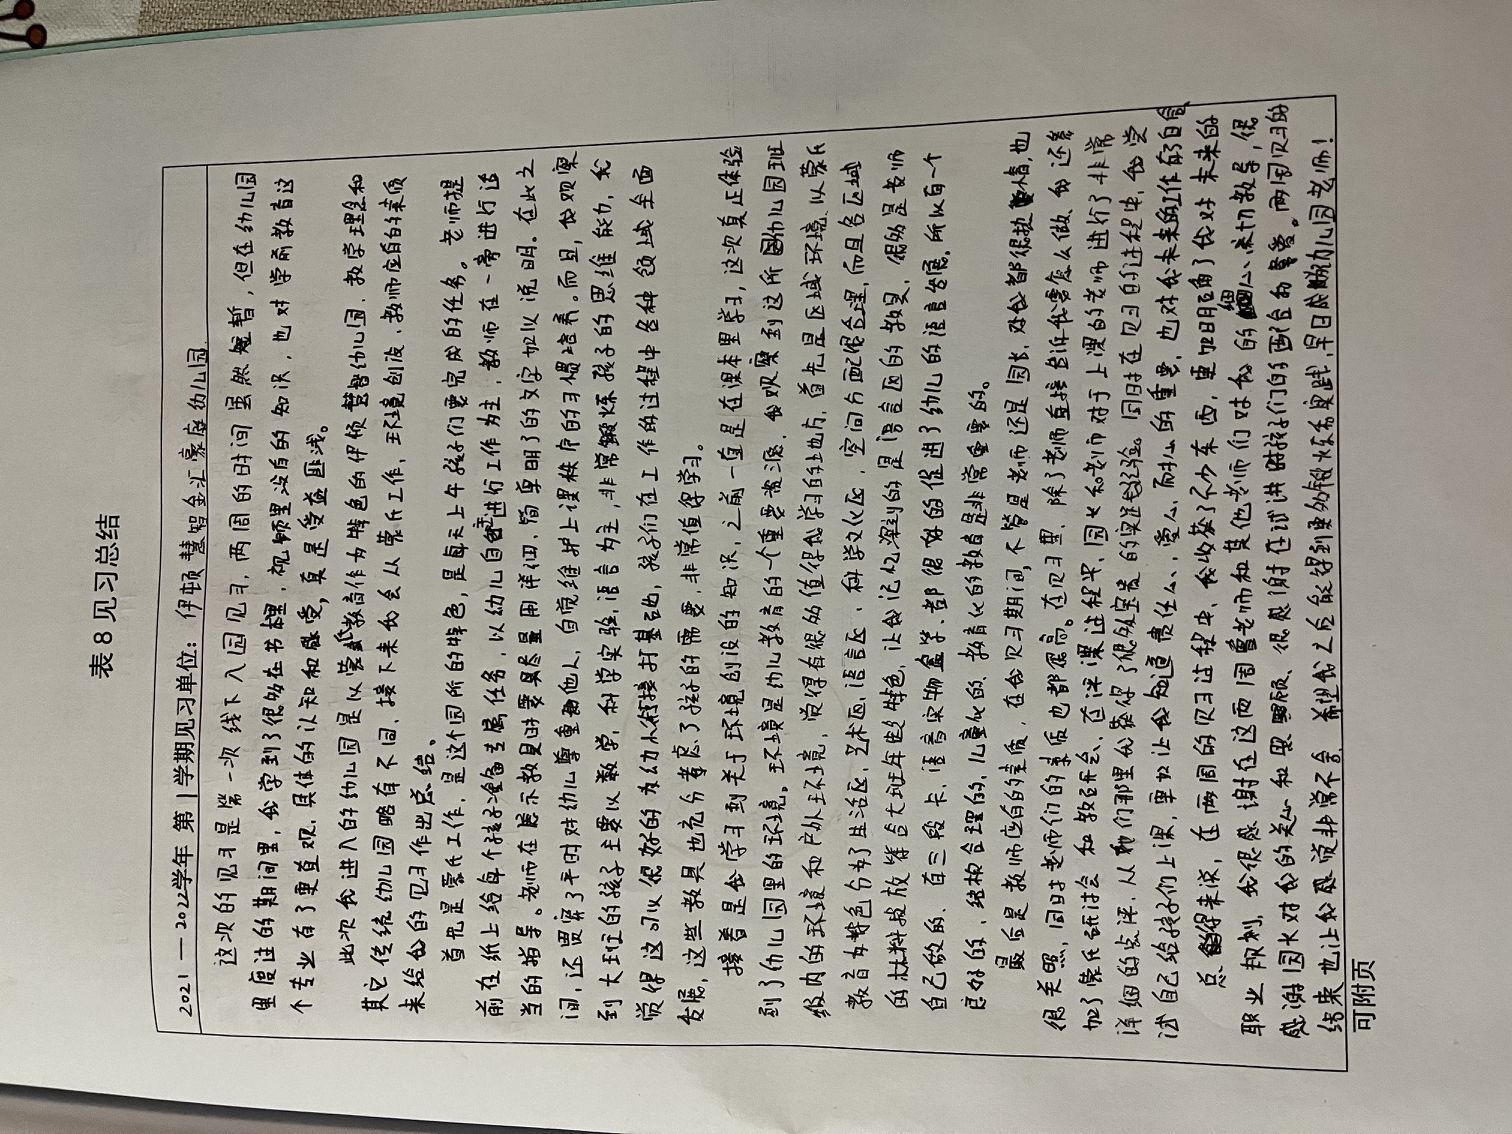 表8 见习总结
2021 — 2022学年 第1学期见习单位：伊顿慧智金汇豪庭幼儿园
这次的见习是第一次线下入园见习，两周的时间虽然短暂，但在幼儿园
里度过的期间里，我学到了很多在书本里、视频里没有的知识，也对学前教育这
个专业有了更直观、具体的认知和感受，真是受益匪浅。
此次我进入的幼儿园是以蒙氏教育作为特色的伊顿慧智幼儿园，教学理念和
其它传统幼儿园略有不同，接下来我会从蒙氏工作，环境创设、教师应有的素质
来给我的见习作出总结。
首先是蒙氏工作，是这个园所的特色，是每天上午孩子们要完成的任务。老师提
前在纸上给每个孩子准备专属任务，以幼儿自主进行工作为主，教师在一旁进行适
当的指导。老师在展示教具时要尽量用详细、简单明了的文字加以说明。在此之
间，还贯穿了平时对幼儿尊重他人，自觉维护上课秩序的习惯培养。而且，我观察
到大班的孩子主要以数学，科学实验，语言为主，非常锻炼孩子的思维能力，我
觉得这可以很好的为幼小衔接打基础，孩子们在工作的过程中各种领域全面
发展，这些教具也充分考虑了孩子的需要，非常值得学习。
接着是我学习到关于环境创设的知识，之前一直是在课本里学习，这次真正体验
到了幼儿园里的环境。环境是幼儿教育的一个重要资源，我观察到这所幼儿园班
级内的环境和户外环境，觉得有很多值得我学习的地方，首先是区域环境，以蒙氏
教育为特色分为了生活区，艺术区，语言区，科学文化区，空间分配很合理，而且各区域
的材料投放符合大班年龄特色，让我记忆深刻的是语言区的教具，很多是老师
自己做的，有三段卡，语音实物盒等，都很好的促进了幼儿的语言发展，所以有一个
良好的，结构合理的，儿童化的，教育化的教育是非常重要的。
最后是教师应有的素质，在我见习期间，不管是老师还是园长，对我都很热情，也
很关照，同时老师们的素质也都很高。在见习里，除了老师直接告诉我要怎么做，我还参
加了蒙氏研讨会和教研会，在评课过程中，园长和老师对于上课的老师进行了非常
详细的点评，从她们那里我获得了很多宝贵的实践经验。同时在见习的过程中，我尝
试自己给孩子们上课，更加让我知道责任心，爱心，耐心的重要，也对我未来的工作有了自信
总得来说，在两周的见习过程中，我收获了不少东西，更加明确了我对未来的
职业规划，我很感谢在这两周曹老师和其他老师们对我的细心、亲切教导，很
感谢园长对我的关心和照顾，很感谢在试讲时孩子们的配合和喜爱。两周见习的
结束也让我感觉非常不舍，希望我之后能得到更多锻炼和实践，早日成为幼儿园老师！
可附页